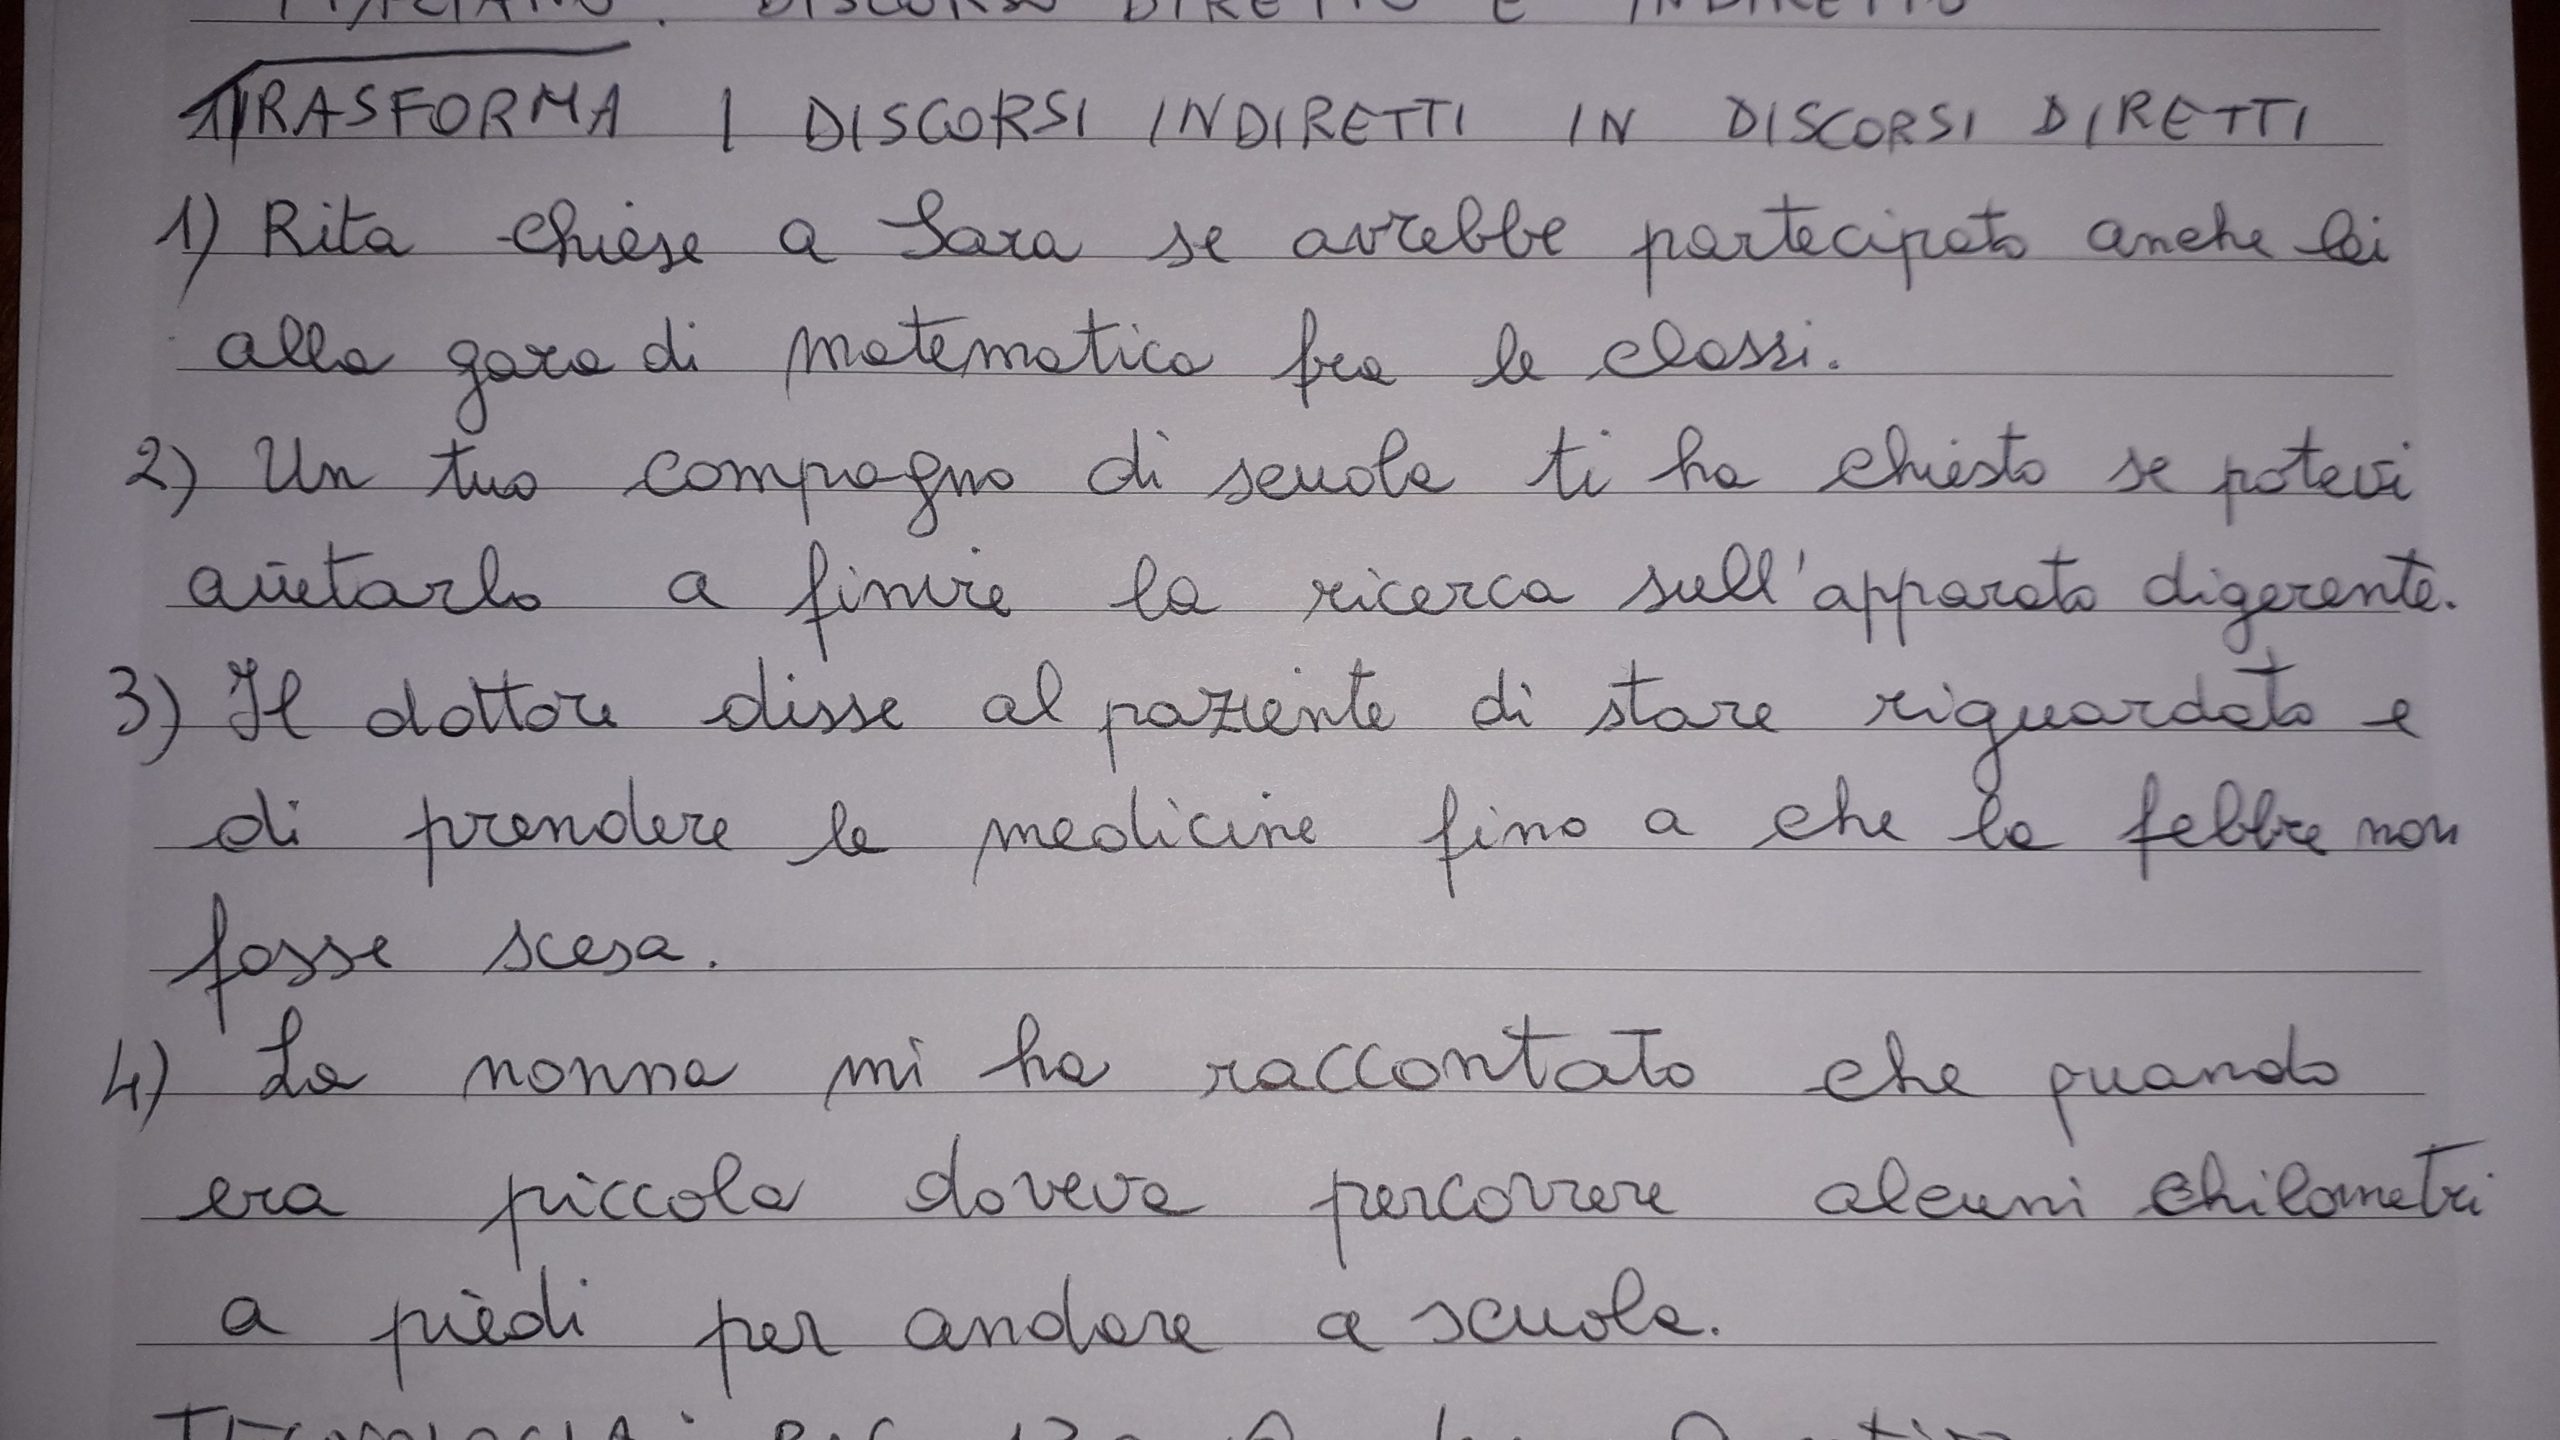 ITALIANO: DISCORSO DIRETTO E INDIRETTO
TRASFORMA I DISCORSI INDIRETTI IN DISCORSI DIRETTI
1) Rita chiese a Sara se avrebbe partecipato anche lei
alla gara di matematica fra le classi.
2) Un tuo compagno di scuola ti ha chiesto se potevi
aiutarlo a finire la ricerca sull'apparato digerente.
3) Il dottore disse al paziente di stare riguardato e
di prendere le medicine fino a che la febbre non
fosse scesa.
4) La nonna mi ha raccontato che quando
era piccola doveva percorrere alcuni chilometri
a piedi per andare a scuola.
TECNOLOGIA: